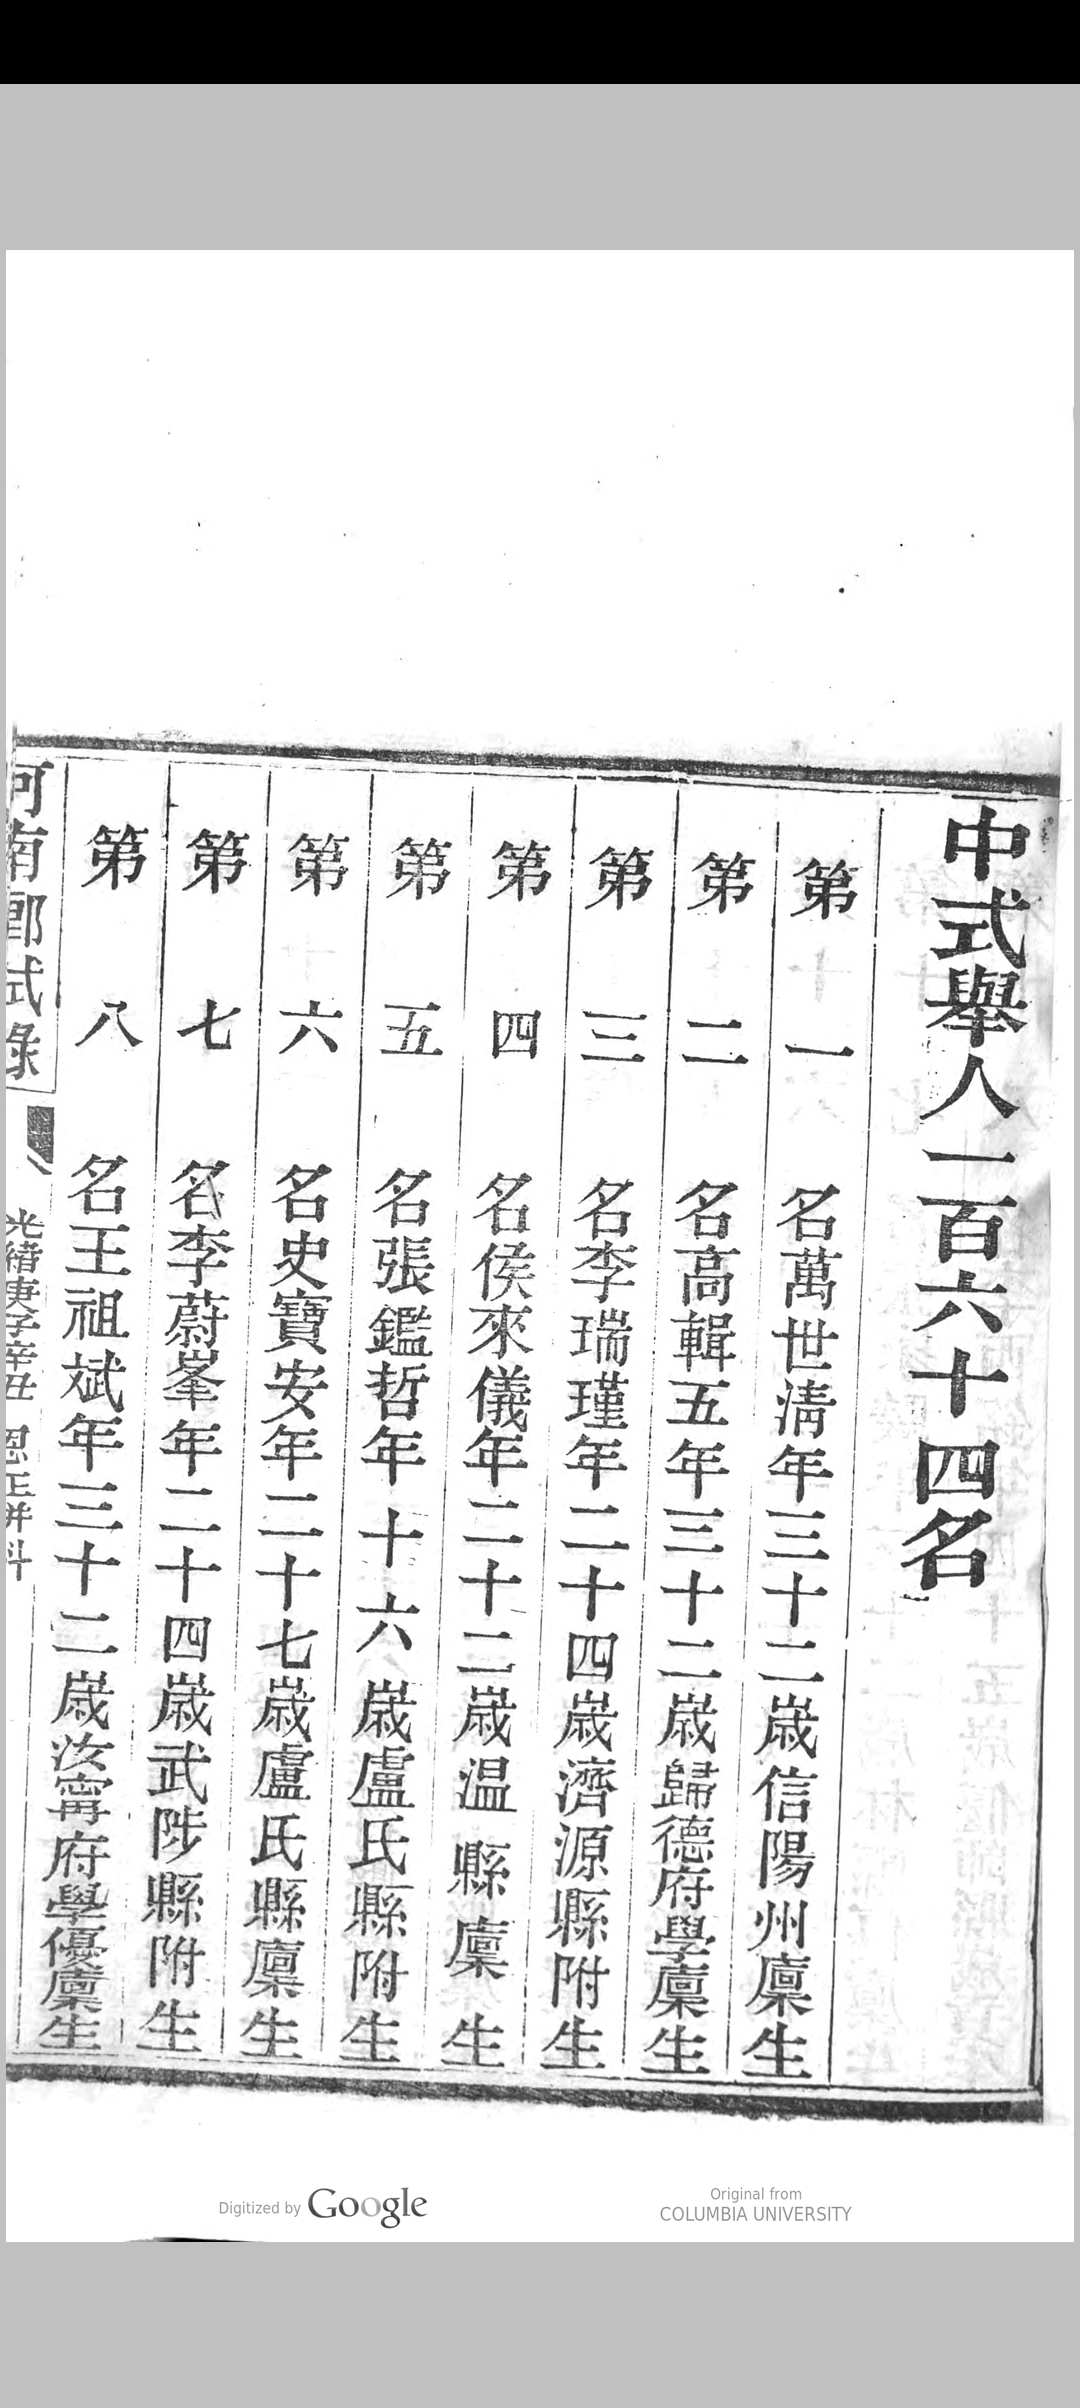 中式舉人一百六十四名
第一名萬世清年三十二歲信陽州廩生
第二名高輯五年三十二歲歸德府學廩生
第三名李瑞瑾年二十四歲濟源縣附生
第四名侯來儀年二十二歲温縣廩生
第五名張鑑哲年十六歲盧氏縣附生
第六名史寶安年二十七歲盧氏縣廩生
第七名李蔚峯年二十四歲武陟縣附生
第八名王祖斌年三十二歲汝甯府學優廩生
河南鄉試錄
光緒庚子辛丑 恩正併科
Digitized by Google
Original from
COLUMBIA UNIVERSITY